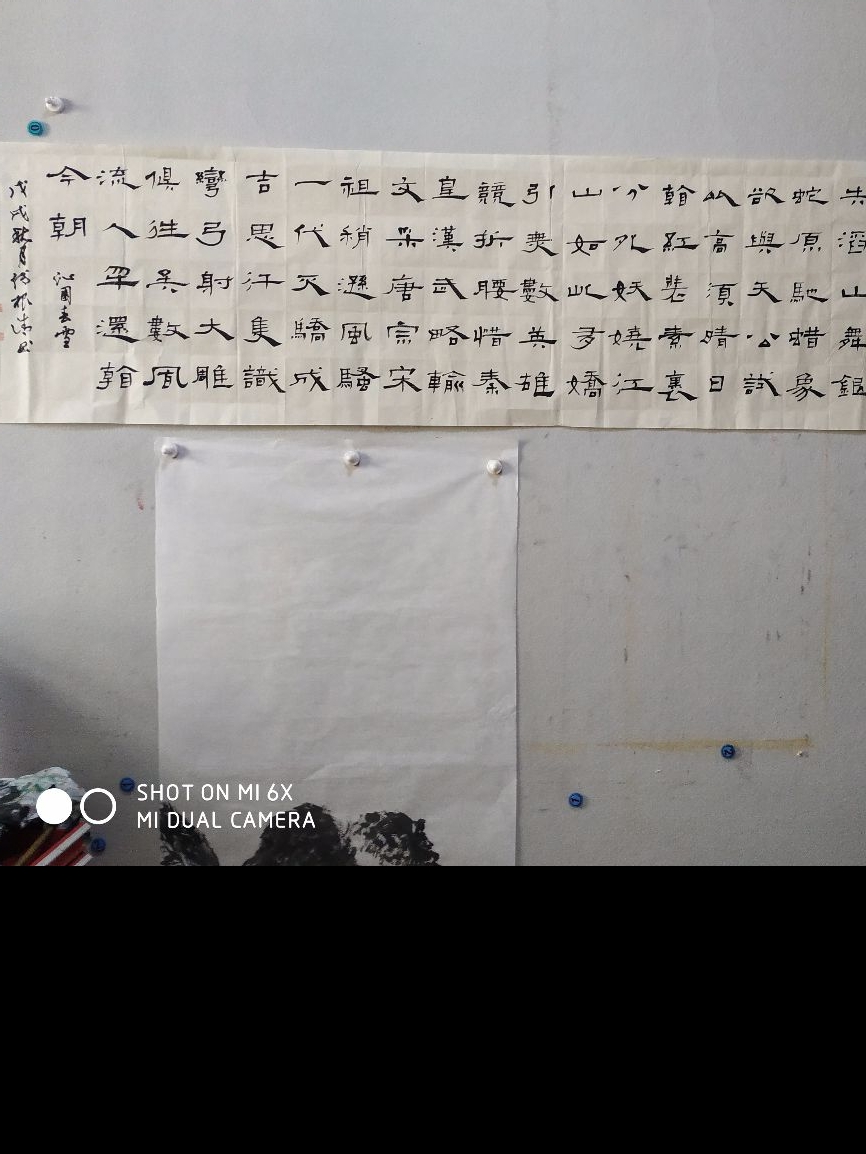 滔山舞銀
蛇原馳蜡象
欲與天公試
比高須晴日
看紅裝素裹
分外妖嬈江
山如此多嬌
引無數英雄
競折腰惜秦
皇漢武略輸
文采唐宗宋
祖稍遜風騷
一代天驕成
吉思汗隻識
彎弓射大雕
俱往矣數風
流人還看
今朝 沁園春雪
戊戌秋月
SHOT ON MI 6X
MI DUAL CAMERA